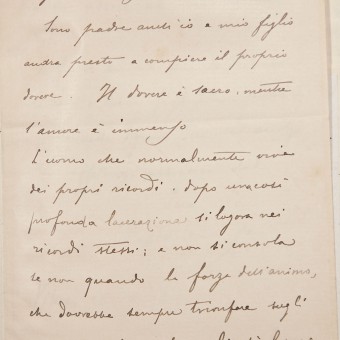 Sono padre anch'io e mio figlio
andrà presto a compiere il proprio
dovere. Il dovere è sacro, mentre
l'amore è immenso
L'uomo che normalmente vive
dei propri ricordi, dopo una così
profonda lacerazione si logora nei
ricordi stessi; e non si consola
se non quando le forze dell'animo,
che dovrebbe sempre trionfare sugli